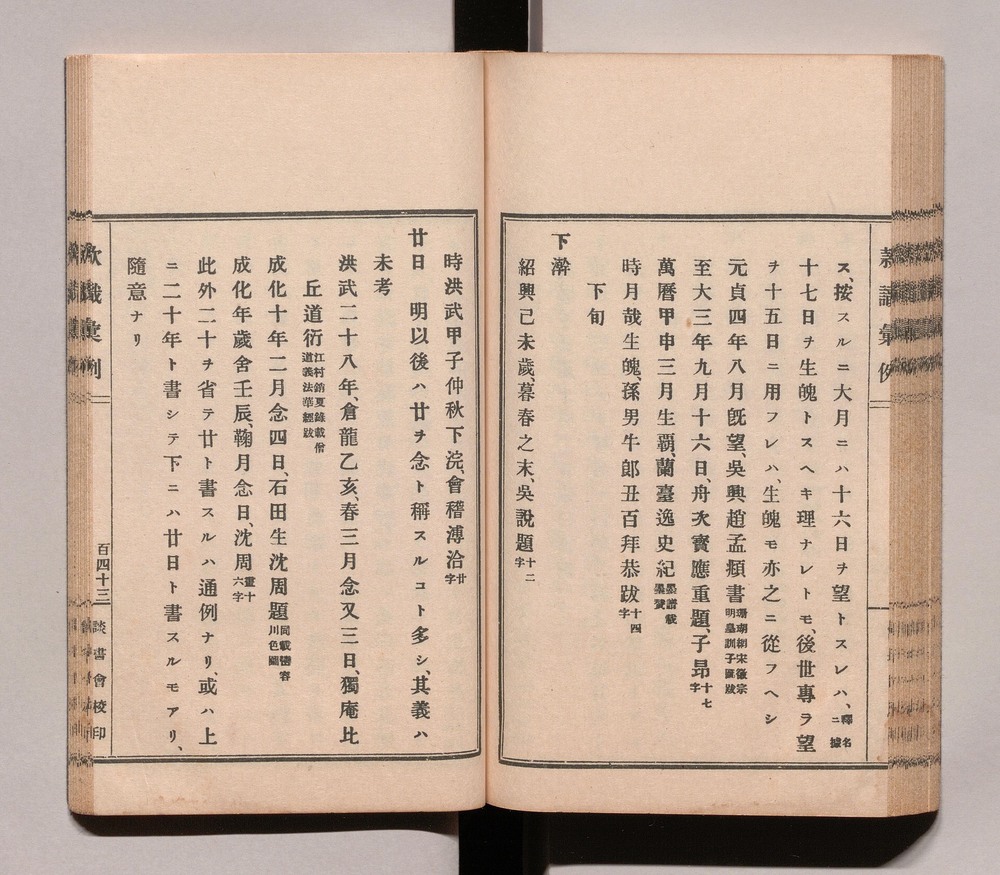 ス、按スルニ大月ニハ十六日ヲ望トスレハ、釋名ニ據
十七日ヲ生魄トスヘキ理ナレトモ、後世專ラ望
ヲ十五日ニ用フレハ、生魄モ亦之ニ從フヘシ
元貞四年八月旣望、吳興趙孟頫書珊瑚網宋徽宗明皇訓子圖跋
至大三年九月十六日、舟次寳應重題、子昻十七字
萬曆甲申三月生覇、蘭臺逸史紀墨譜載墨贊
時月哉生魄、孫男牛郎丑百拜恭跋十四字
下旬
下澣
紹興己未歲、暮春之末、吳說題十二字
時洪武甲子仲秋下浣、會稽溥洽廿字
廿日 明以後ハ廿ヲ念ト稱スルコト多シ、其義ハ
未考
洪武二十八年、倉龍乙亥、春三月念又三日、獨庵比
丘道衍江村銷夏錄載僧道義法華經跋
成化十年二月念四日、石田生沈周題同載谿容川色圖
成化年歲舍壬辰、鞠月念日、沈周畫十六字
此外二十ヲ省テ廿ト書スルハ通例ナリ、或ハ上
ニ二十年ト書シテ下ニハ廿日ト書スルモアリ、
隨意ナリ
欵識彙例
百四十三
談書會校印